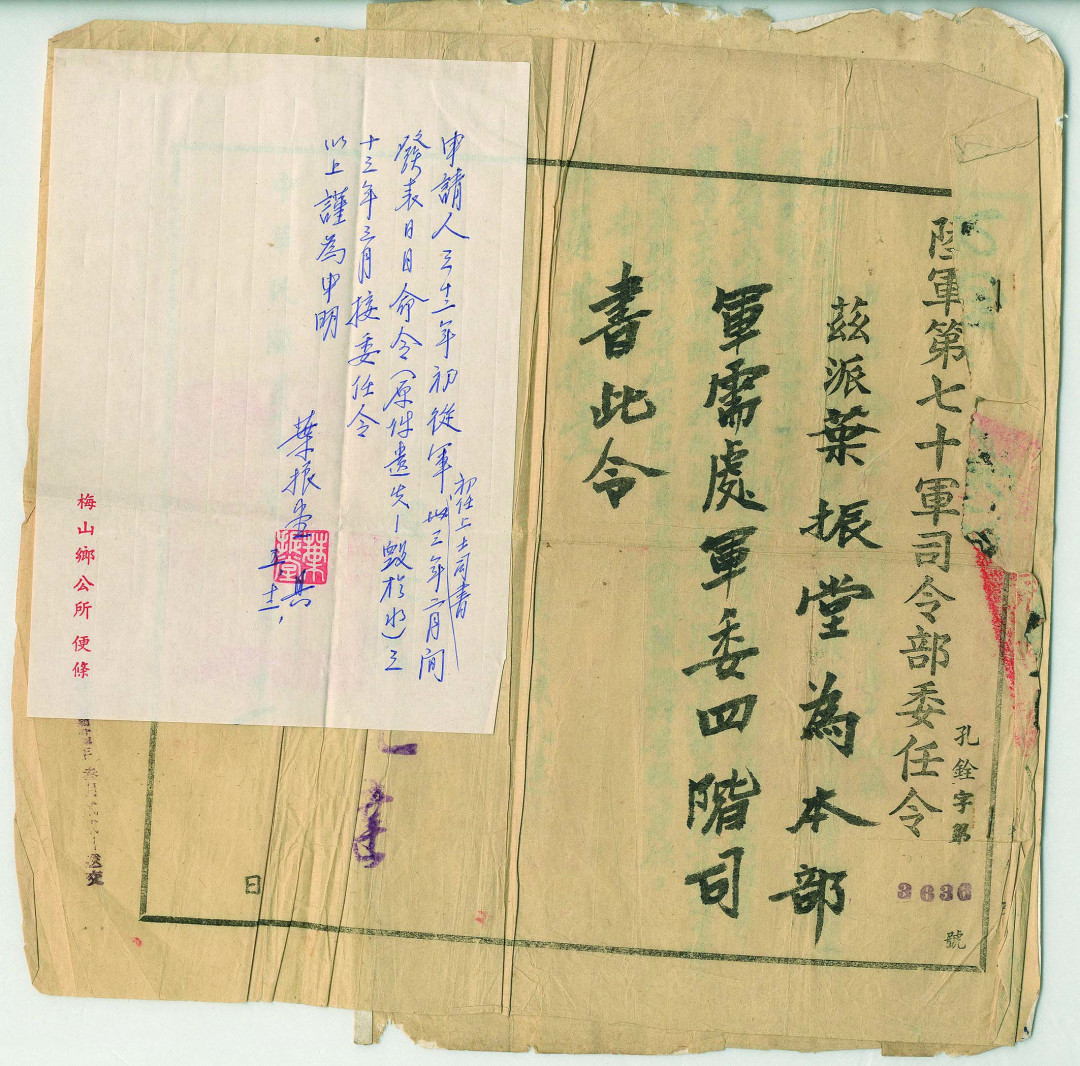 陸軍第七十軍司令部委任令
孔銓字第
3636
號
茲派葉振堂為本部
軍需處軍委四階司
書此令
日
申請人三十二年初從軍初任上士司書卅三年二月間
發表日日命令(原件遺失—毀於水)三
十三年三月接委任令
以上謹為申明
葉振堂
葉振堂
梅山鄉公所便條
送交